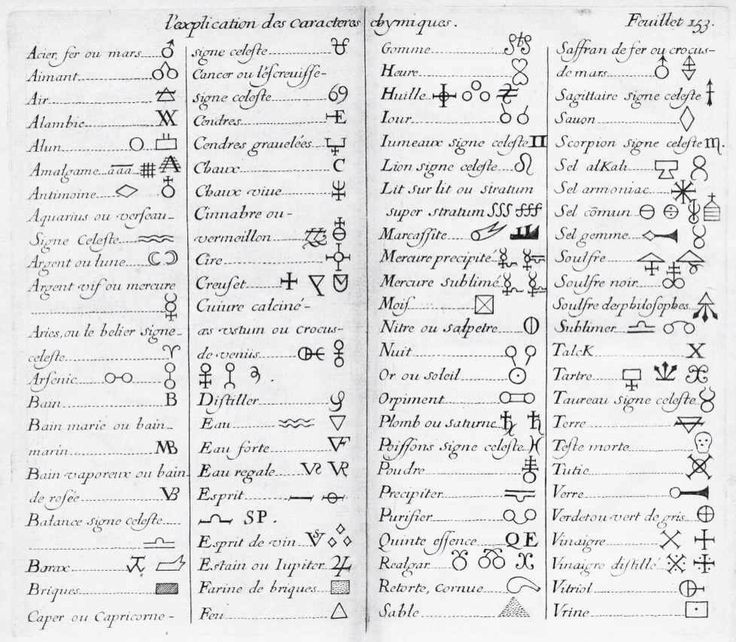 l'explication des Caracteres chymiques. Feuillet 153.
Acier, fer ou mars
Aimant
Air
Alambic
Alun
Amalgame aaa
Antimoine
Aquarius ou verseau
Signe Celeste
Argent ou lune
Argent vif ou mercure
Aries, ou le belier signe
celeste
Arsenic
Bain B
Bain marie ou bain
marin MB
Bain vaporeux ou bain
de rosée VB
Balance signe celeste
Borax
Briques
Caper ou Capricorne
signe celeste
Cancer ou l'éscreuisse
signe celeste 69
Cendres E
Cendres grauelées
Chaux C
Chaux viue
Cinnabre ou
vermeillon
Cire
Creuset
Cuiure calciné
æs ustum ou crocus
de venus
Distiller
Eau
Eau forte
Eau regale
Esprit
SP.
Esprit de vin
Estain ou Iupiter
Farine de briques
Feu
Gomme
Heure
Huille
Iour
Iumeaux signe celeste
Lion signe celeste
Lit sur lit ou stratum
super stratum SSS
Marcassite
Mercure precipité
Mercure sublimé
Mois
Nitre ou salpetre
Nuit
Or ou soleil
Orpiment
Plomb ou saturne
Poissons signe celeste
Poudre
Precipiter
Purifier
Quinte essence QE
Realgar
Retorte, cornue
Sable
Saffran de fer ou crocus
de mars
Sagittaire signe celeste
Sauon
Scorpion signe celeste
Sel alKali
Sel armoniac
Sel cõmun
Sel gemme
Soulfre
Soulfre noir
Soulfre des philosophes
Sublimer
Tal-K X
Tartre
Taureau signe celeste
Terre
Teste morte
Tutie
Verre
Verdet ou vert de gris
Vinaigre
Vinaigre distillé
Vitriol
Vrine